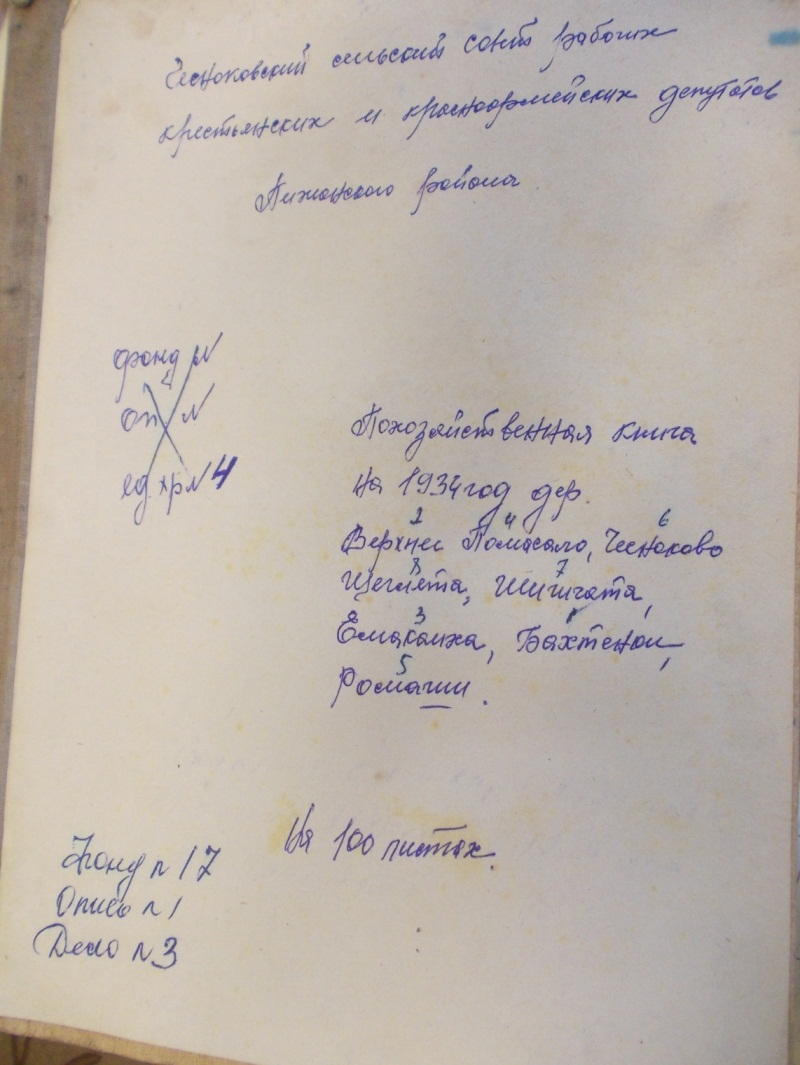 Чесноковский сельский совет рабочих
крестьянских и красноармейских депутатов
Пижанского района
фонд №
оп №
ед.хр № 4
Похозяйственная книга
на 1934 год дер.
2 4 6
Верхнее Помасало, Чесноково
8 7
Щеглята, Шишигата,
3 1
Емаканха, Бахтенки,
5
Ромаши.
На 100 листах.
Фонд № 17
Опись № 1
Дело № 3